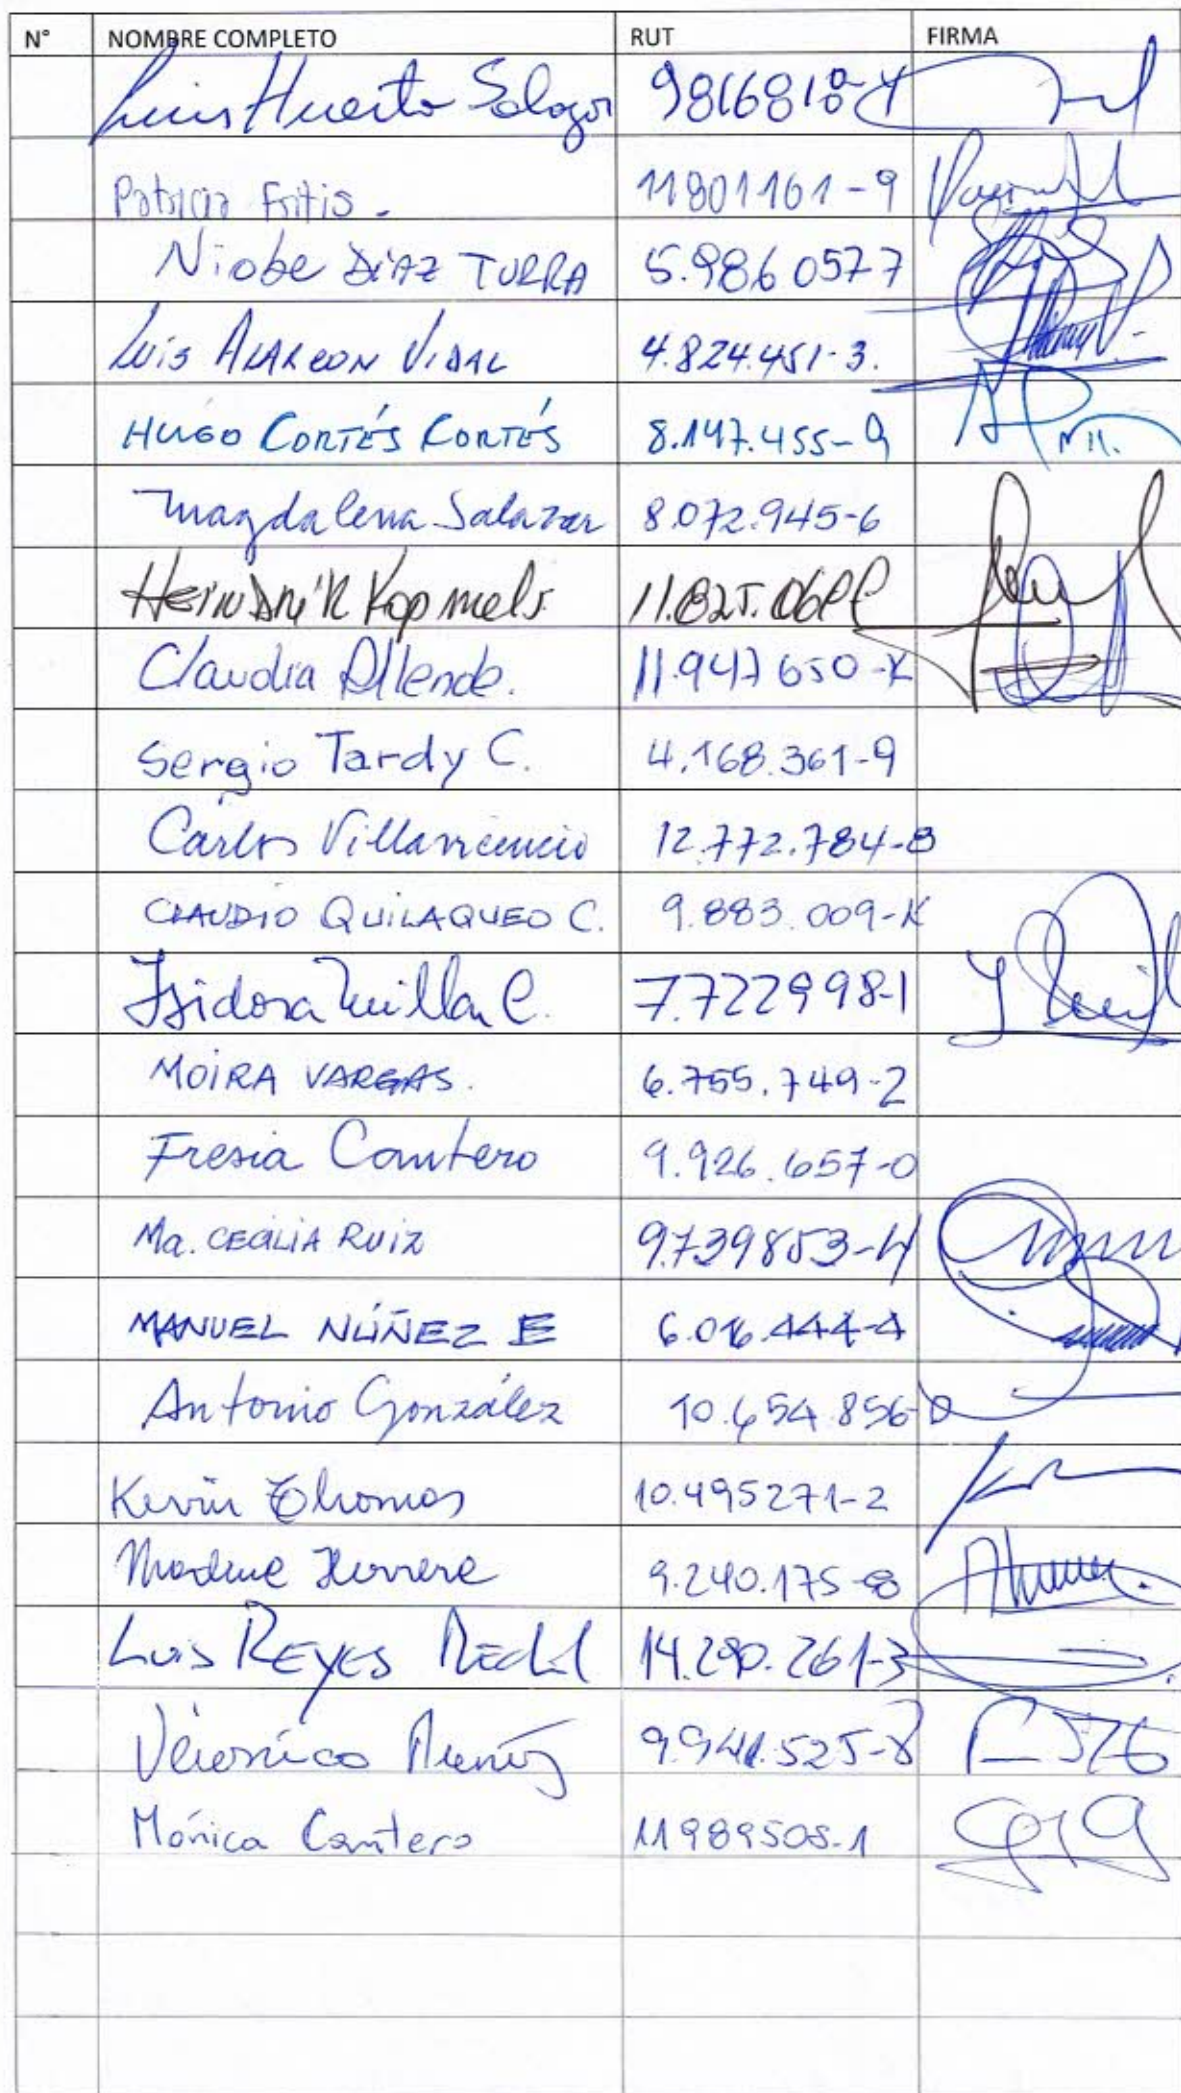 N° NOMBRE COMPLETO RUT FIRMA
Luis Huerta Salazar 9816818-4
Patricia Fritis. 11801161-9
Niobe DÍAZ TURRA 5.986.057-7
Luis ALARCON VIDAL 4.824.451-3.
HUGO CORTÉS CORTÉS 8.147.455-9
Magdalena Salazar 8.072.945-6
Kopmels 11.825.
Claudia Allende. 11.947650-K
Sergio Tardy C. 4.168.361-9
Carlos Villavicencio 12.772.784-8
CLAUDIO QUILAQUEO C. 9.883.009-K
Isidora C. 7.722998-1
MOIRA VARGAS. 6.755.749-2
Fresia Cantero 9.926.657-0
Ma. CECILIA RUIZ 9.739853-4
MANUEL NÚÑEZ E 6.016.444-4
Antonio González 10.654.856-0
Kevin Thomas 10.495271-2
Herrera 9.240.175-8
Luis REYES Medel 14.290.261-3
Verónica Muñoz 9.941.525-8
Mónica Cantero 11989508-1